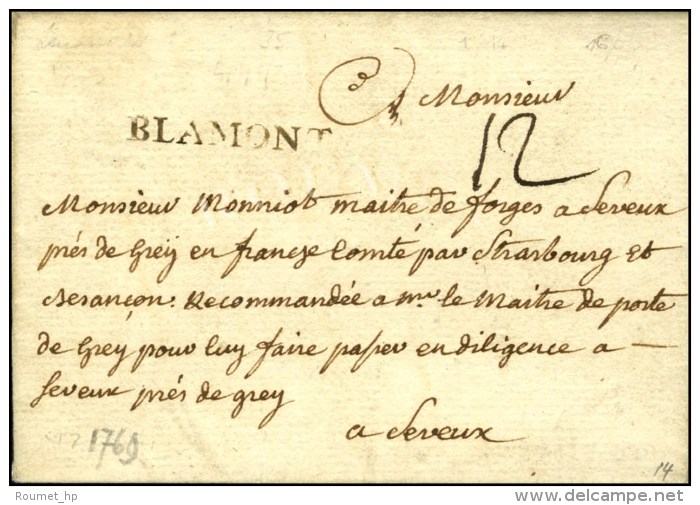 A Monsieur
BLAMONT
12
Monsieur Monniot maitre de forges a Seveux
prés de Greÿ en franche Comté par Strasbourg et
Besançon. Recommandée a mr le Maitre de poste
de Greÿ pour luy faire passer en diligence a —
Seveux prés de grey
a Seveux
1769
14
Roumet_hp
©delcampe.net